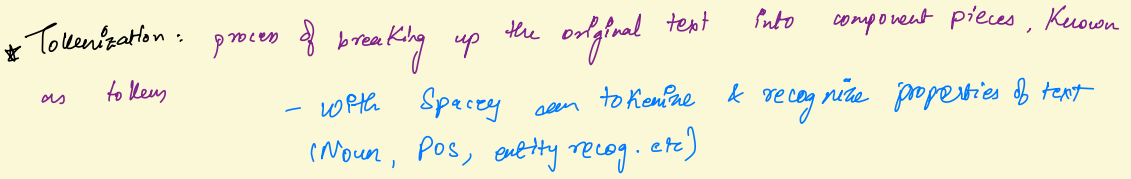 * Tokenization : process of breaking up the original text into component pieces, Known
as tokens
- with Spacey can tokenize & recognize properties of text
(Noun, POS, entity recog. etc)